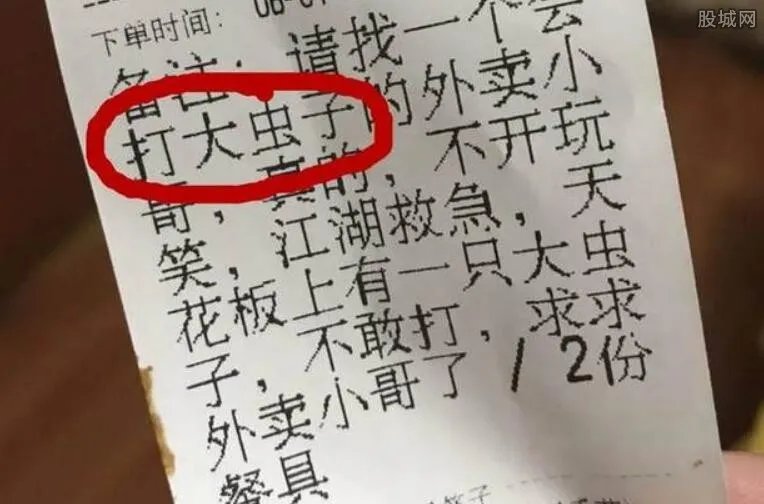 股城网
下单时间:
备注: 请找一个会
打大虫子的外卖小
哥,真的,不开玩
笑,江湖救急,天
花板上有一只大虫
子,不敢打,求求
外卖小哥了 / 2份
餐具